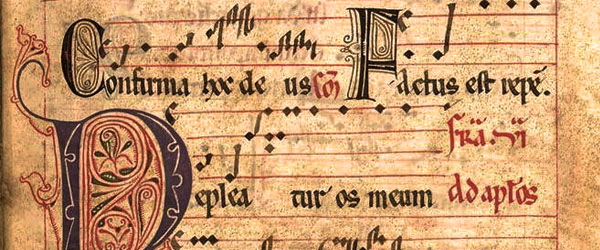 Confirma hoc de us Com̄ Factus est repē.
Fr̄a. vi
Replea tur os meum Ad apl̄os